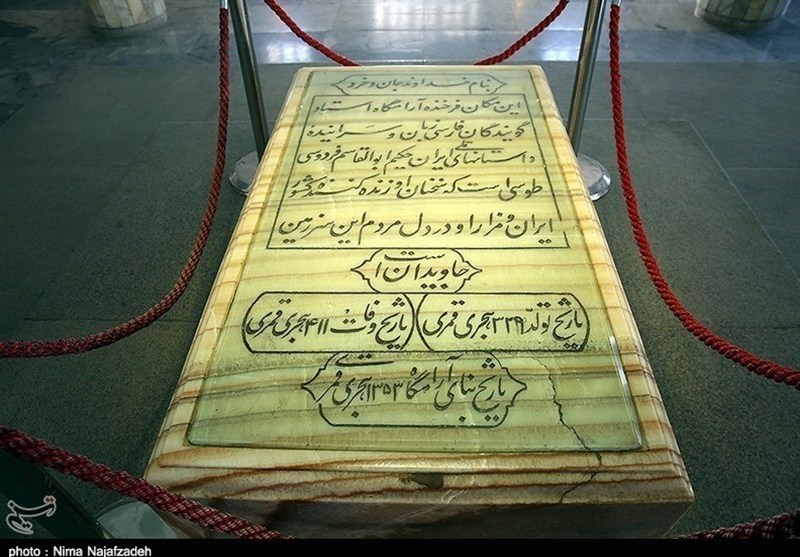 بنام خداوند جان و خرد
این مکان فرخنده آرامگاه استاد
گویندگان فارسی زبان و سراینده
داستانهای ملی ایران حکیم ابوالقاسم فردوسی
طوسی است که سخنان او زنده کننده کشور
ایران و مزار او در دل مردم این سرزمین
جاویدان است
تاریخ تولد ۳۲۹ هجری قمری
تاریخ وفات ۴۱۱ هجری قمری
تاریخ بنای آرامگاه ۱۳۵۳ هجری قمری
تسنیم
photo : Nima Najafzadeh